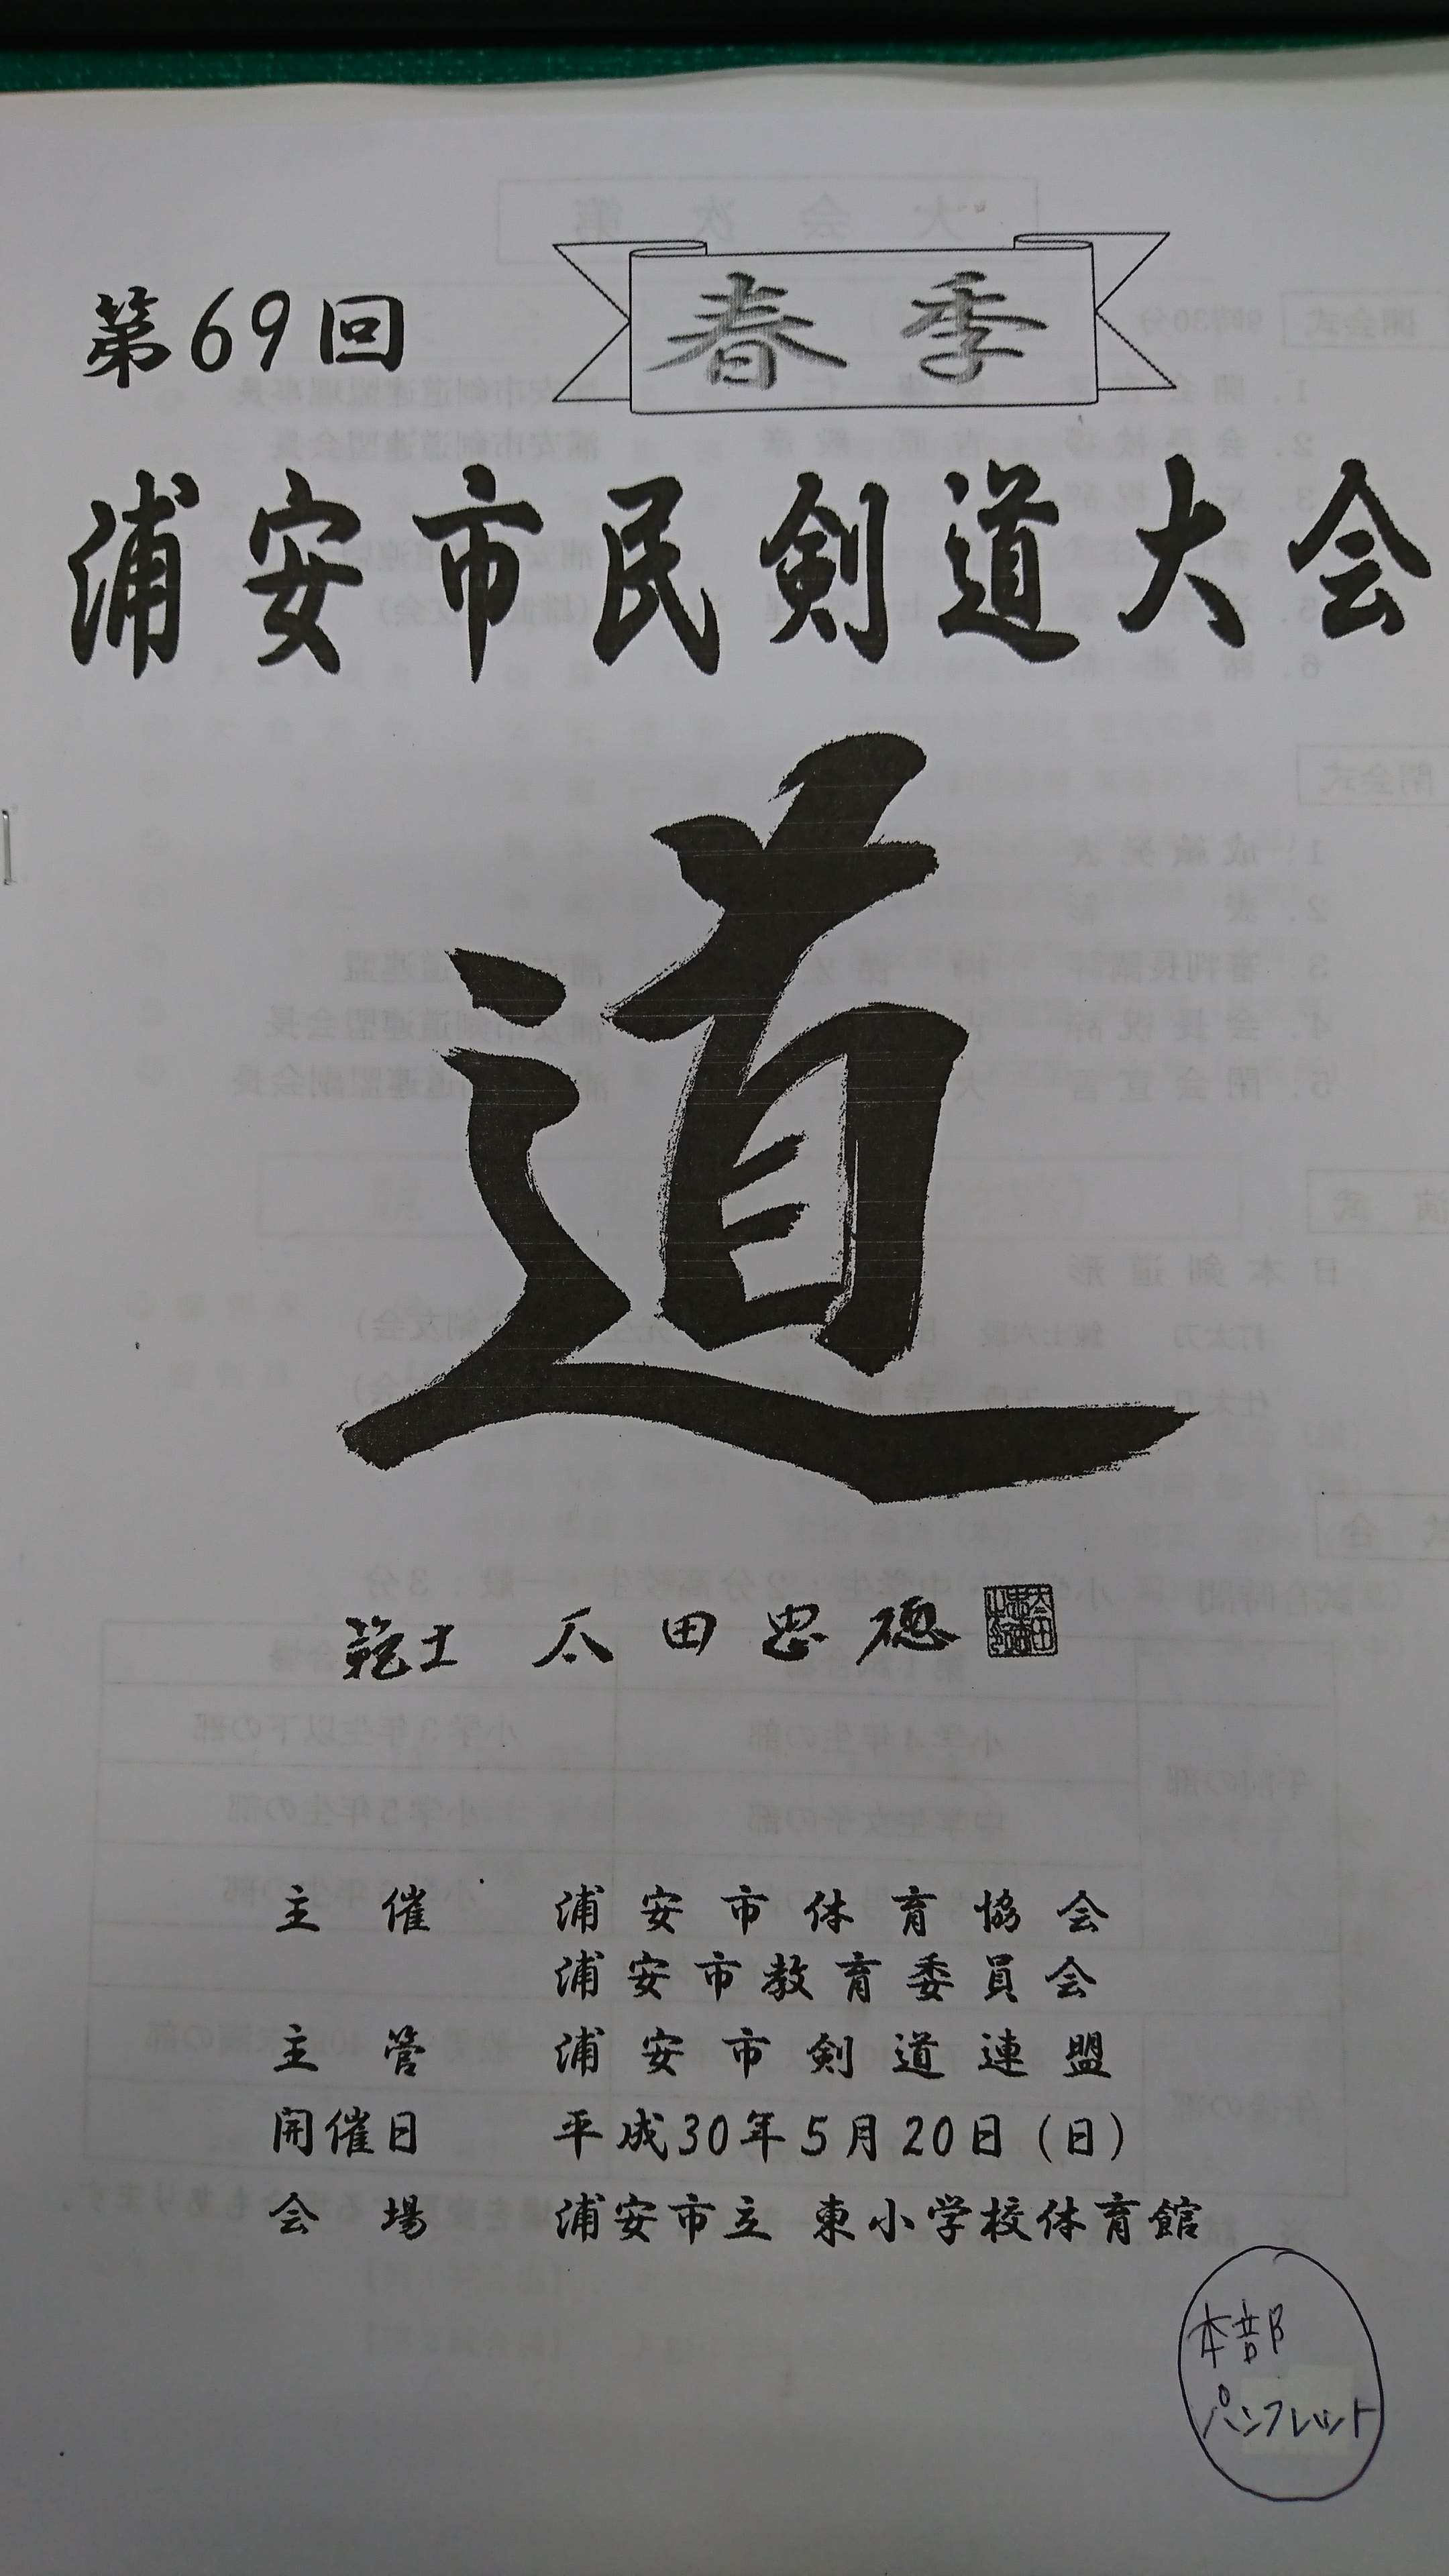 第69回
春季
浦安市民剣道大会
道
範士 太田忠徳
主催 浦安市体育協会
浦安市教育委員会
主管 浦安市剣道連盟
開催日 平成30年5月20日(日)
会場 浦安市立 東小学校体育館
本部
パンフレット